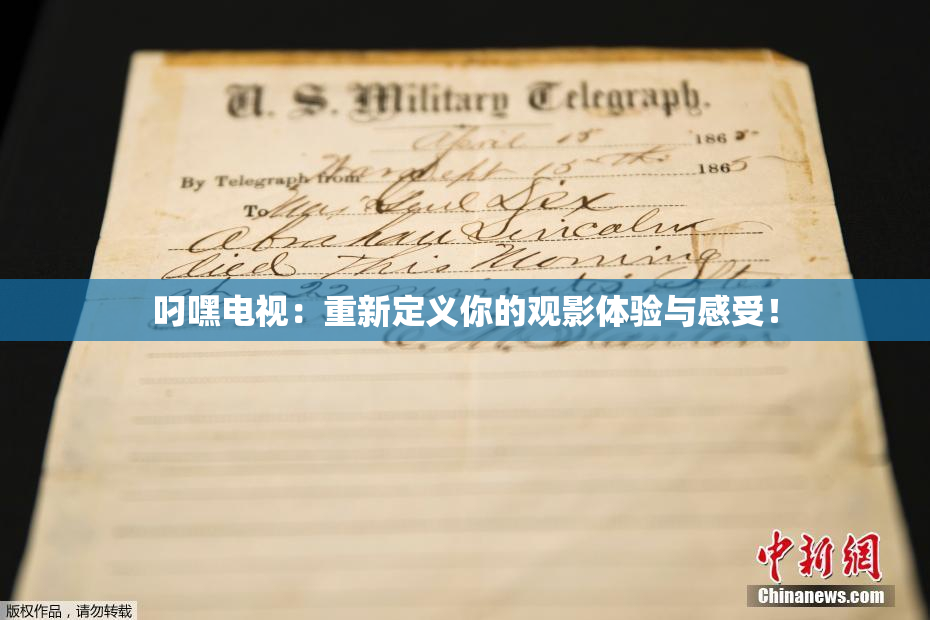 U. S. Military Telegraph.
April 15 1865
By Telegraph from War Dept 15th 1865
To Maj Genl Dix
Abraham Lincoln
died This Morning
at 22 minutes after
叼嘿电视：重新定义你的观影体验与感受！
E. M. Stanton
中新網
Chinanews.com
版权作品，请勿转载